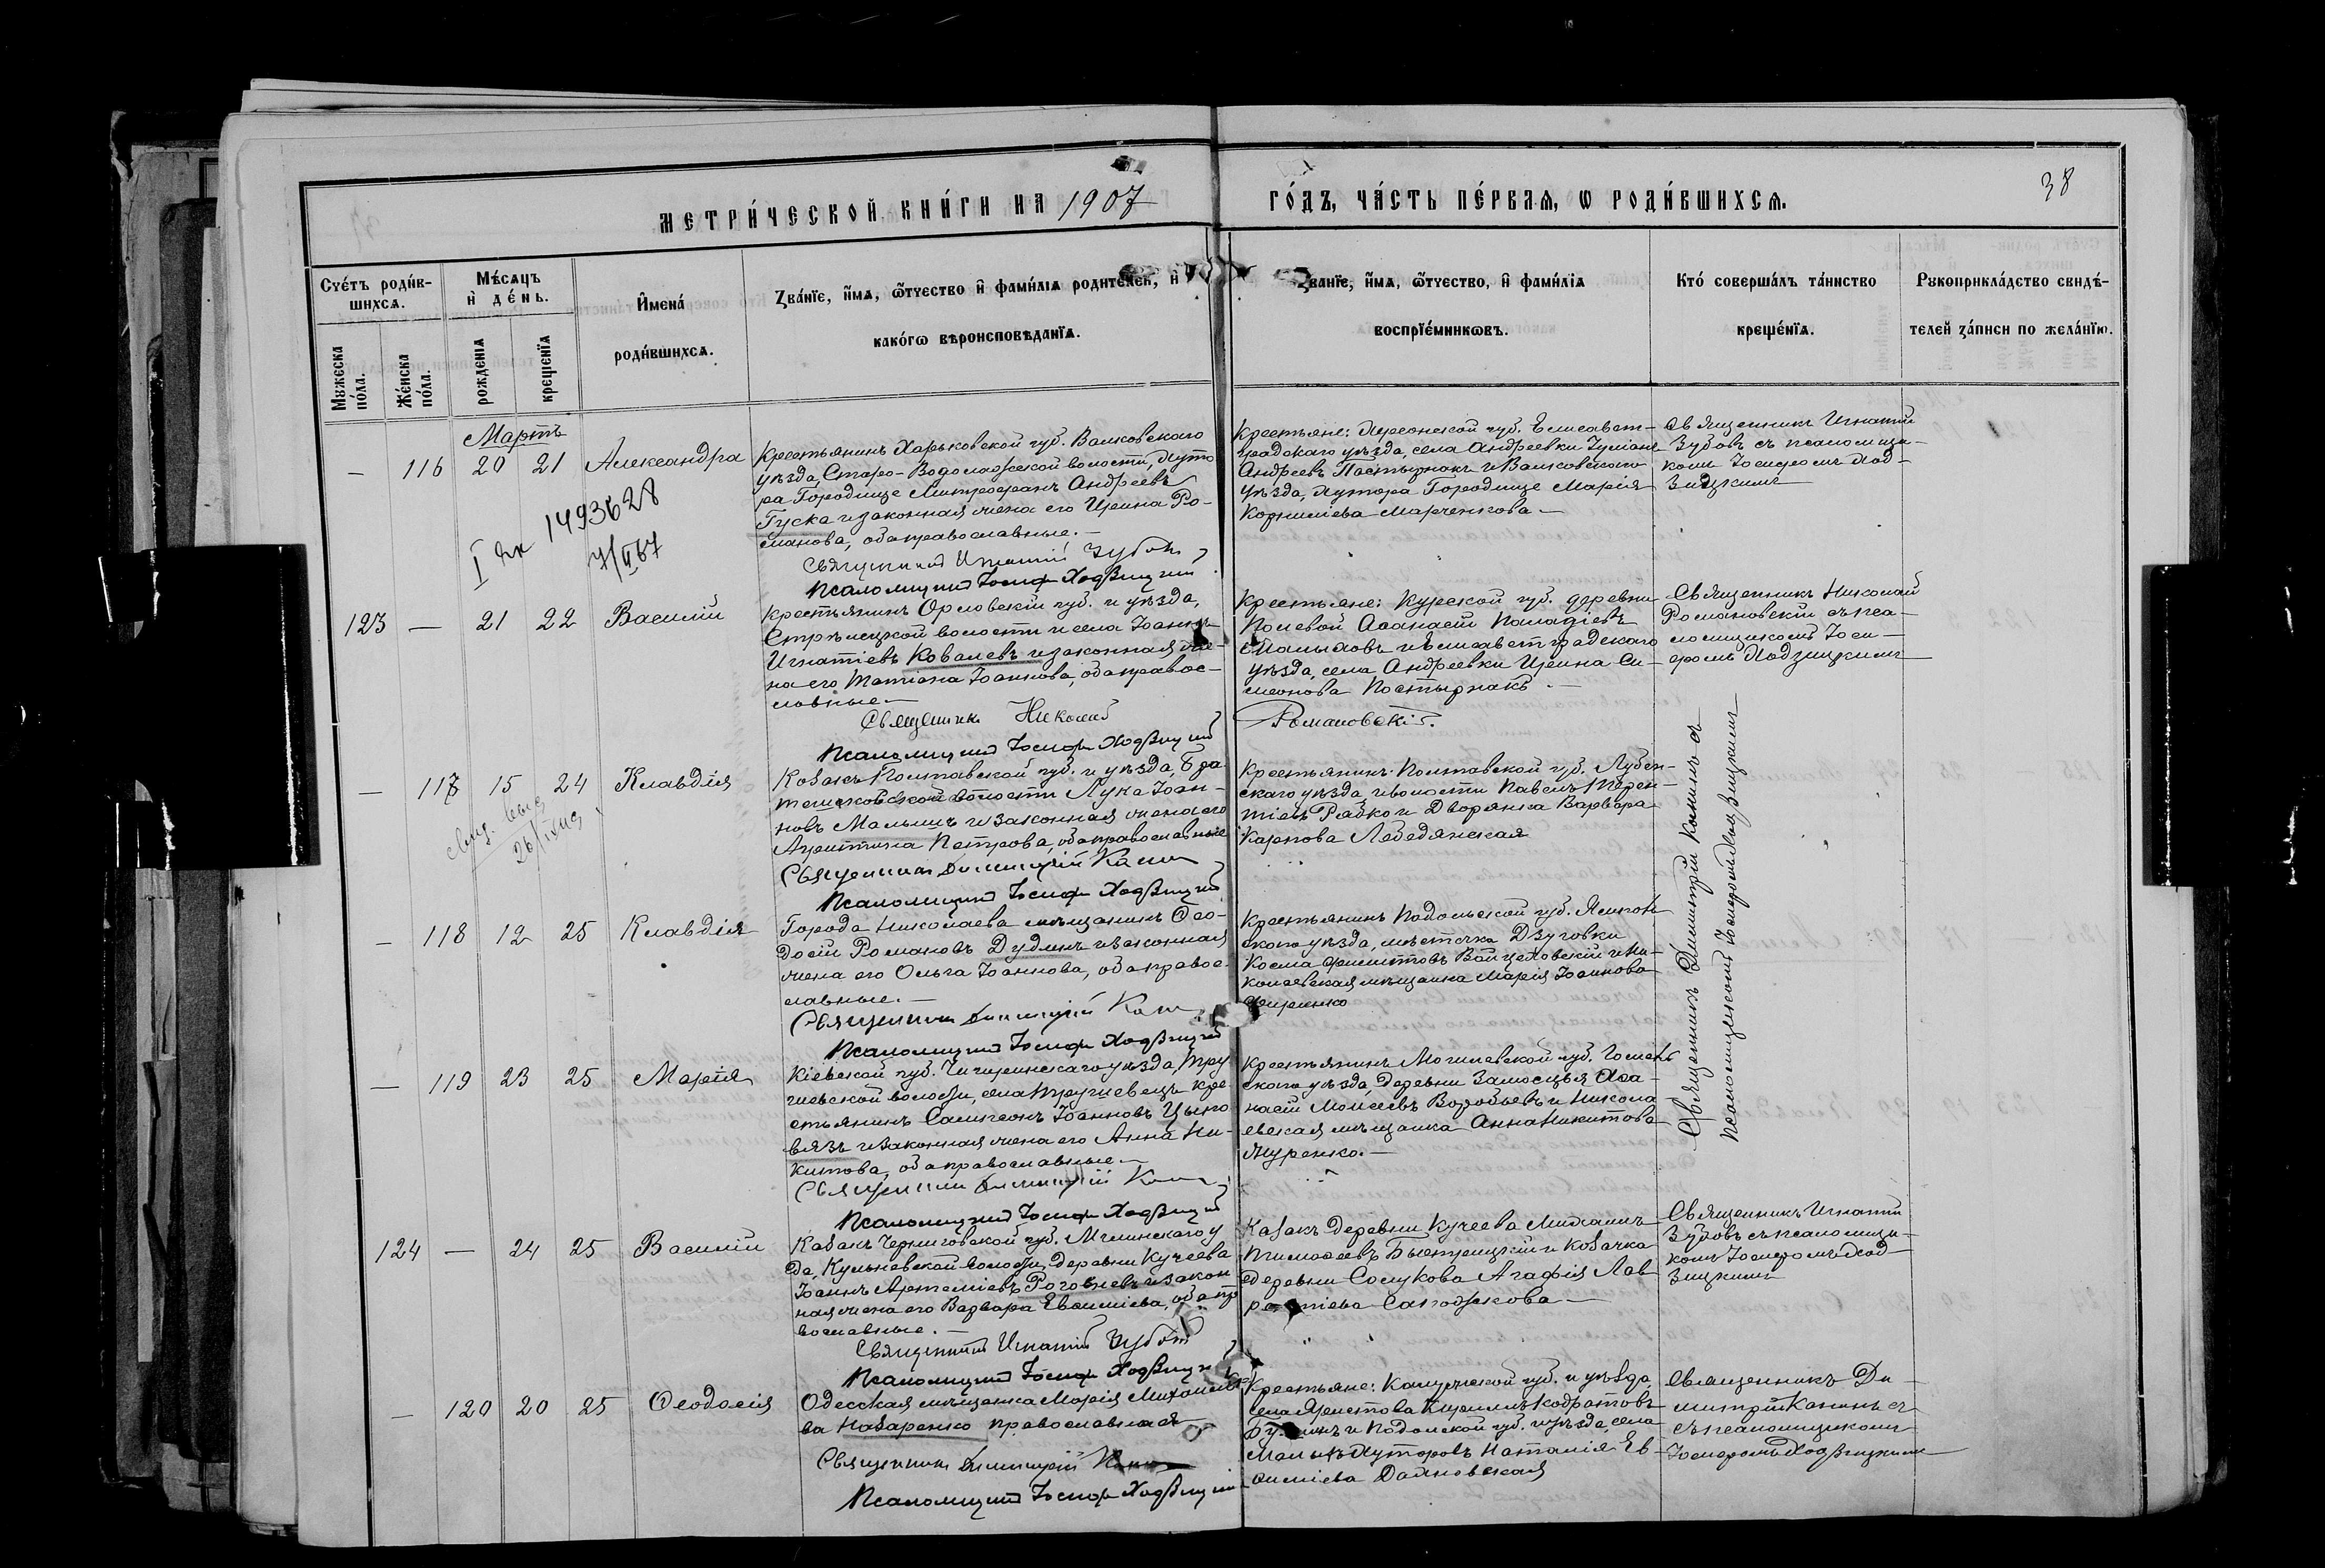 МЕТРИ́ЧЕСКОЙ КНИ́ГИ НА 1907
ГО́ДЪ, ЧА́СТЬ ПЕ́РВАѦ, Ѡ РОДИ́ВШИХСѦ.
38
Сче́тъ роди́в-
шихсѧ.
Мꙋжеска
по́ла.
Же́нска
по́ла.
Мѣ́сѧцъ
и҆ де́нь.
рожденїѧ
крещенїѧ
И҆мена́
роди́вшихсѧ.
Зва́нїе, и҆́мѧ, ѻ҆́тчество и҆ фами́лїѧ родителей, и҆
како́гѡ вѣроисповѣданїѧ.
Зва́нїе, и҆́мѧ, ѻ҆́тчество, и҆ фами́лїѧ
воспрїе́мникѡвъ.
Кто́ соверша́лъ та́инство
креще́нїѧ.
Рꙋкоприкла́дство свидѣ́-
телей за́писи по жела́нїю.
Мартъ
— 116 20 21 Александра
Крестьянинъ Харьковской губ. Валковскаго
уѣзда, Старо-Водолажской волости, Хуто
ра Городище Митрофанъ Андреевъ
Гуска и законная жена его Ирина Ро-
манова, оба православные.—
Священникъ Игнатій Зубовъ
Псаломщикъ Іосифъ Ходзицкій
Крестьяне: Херсонской губ. Елисавет-
градскаго уѣзда, села Андреевки Іуліанъ
Андреевъ Пастырнакъ и Валковскаго
уѣзда, Хутора Городище Марія
Корниліева Марченкова.—
Священникъ Игнатій
Зубовъ съ псаломщи-
комъ Іосифомъ Ход-
зицкимъ
1493628
7/II 67
123 — 21 22 Василій
Крестьянинъ Орловской губ. и уѣзда,
Стрѣлецкой волости и села Іоаннъ
Игнатіевъ Ковалевъ и законная же-
на его Татіана Іоаннова, оба правос-
лавные.—
Священникъ Николай
Романовскій.
Псаломщикъ Іосифъ Ходзицкій
Крестьяне: Курской губ. деревни
Полевой Аѳанасій Паладіевъ
Малыховъ и Елисаветградскаго
уѣзда, села Андреевки Ирина Си-
меонова Пастырнакъ.—
Священникъ Николай
Романовскій съ пса-
ломщикомъ Іоси-
фомъ Ходзицкимъ
— 117 15 24 Клавдія
26/IX
Козакъ Полтавской губ. и уѣзда,
волости Лука Іоан-
новъ Малышъ и законная жена его
Христина Петрова, оба православные
Священникъ Димитрій
Псаломщикъ Іосифъ Ходзицкій
Крестьянинъ Полтавской губ. Лубен-
скаго уѣзда и волости Павелъ Терен-
тіевъ Рябко и Дворянка Варвара
Карпова Лебедянская
Священникъ Димитрій съ
псаломщикомъ Іосифомъ Ходзицкимъ
— 118 12 25 Клавдія
Города Николаева мѣщанинъ Ѳео-
досій Романовъ Дудинъ и законная
жена его Ольга Іоаннова, оба правос-
лавные.—
Священникъ Димитрій
Псаломщикъ Іосифъ Ходзицкій
Крестьянинъ Подольской губ. Ямполь
скаго уѣзда, мѣстечка Дзуговки
Косма Войцеховскій и Ни-
колаевская мѣщанка Марія Іоаннова
— 119 23 25 Марія
Кіевской губ. Чигиринскаго уѣзда, Тру
шевской волости, села Трушевецъ кре-
стьянинъ Сампсонъ Іоанновъ Цыпо
вязъ и законная жена его Анна Ни-
китова, оба православные.—
Священникъ Димитрій
Псаломщикъ Іосифъ Ходзицкій
Крестьянинъ Могилевской губ. Гомель
скаго уѣзда, деревни Замосцья Аѳа-
насій Моисеевъ Воробьевъ и Никола
евская мѣщанка Анна Никитова
124 — 24 25 Василій
Козакъ Черниговской губ. Мглинскаго у
да, Кульневской волости, деревни Кучеева
Іоаннъ Артеміевъ Роговцевъ и закон
ная жена его Варвара Евѳиміева, оба пр
вославные.—
Священникъ Игнатій Зубовъ
Псаломщикъ Іосифъ Ходзицкій
Козакъ деревни Кучеева Михаилъ
Тимоѳеевъ Быстрицкій и Козачка
деревни Сочукова Агафія Лав
рентіева Сапожкова—
Священникъ Игнатій
Зубовъ съ псаломщи-
комъ Іосифомъ Ход-
зицкимъ
— 120 20 25 Ѳеодосія
Одесская мѣщанка Марія Михаило
ва Назаренко православная—
Священникъ Димитрій
Псаломщикъ Іосифъ Ходзицкій
Крестьяне: Калужской губ. и уѣзда
села Кириллъ Кодратовъ
и Подольской губ. и уѣзда, села
Малыхъ Хуторовъ Наталія Ев-
ѳиміева Дайновская
Священникъ Ди-
митрій съ
псаломщикомъ
Іосифомъ Ходзицкимъ